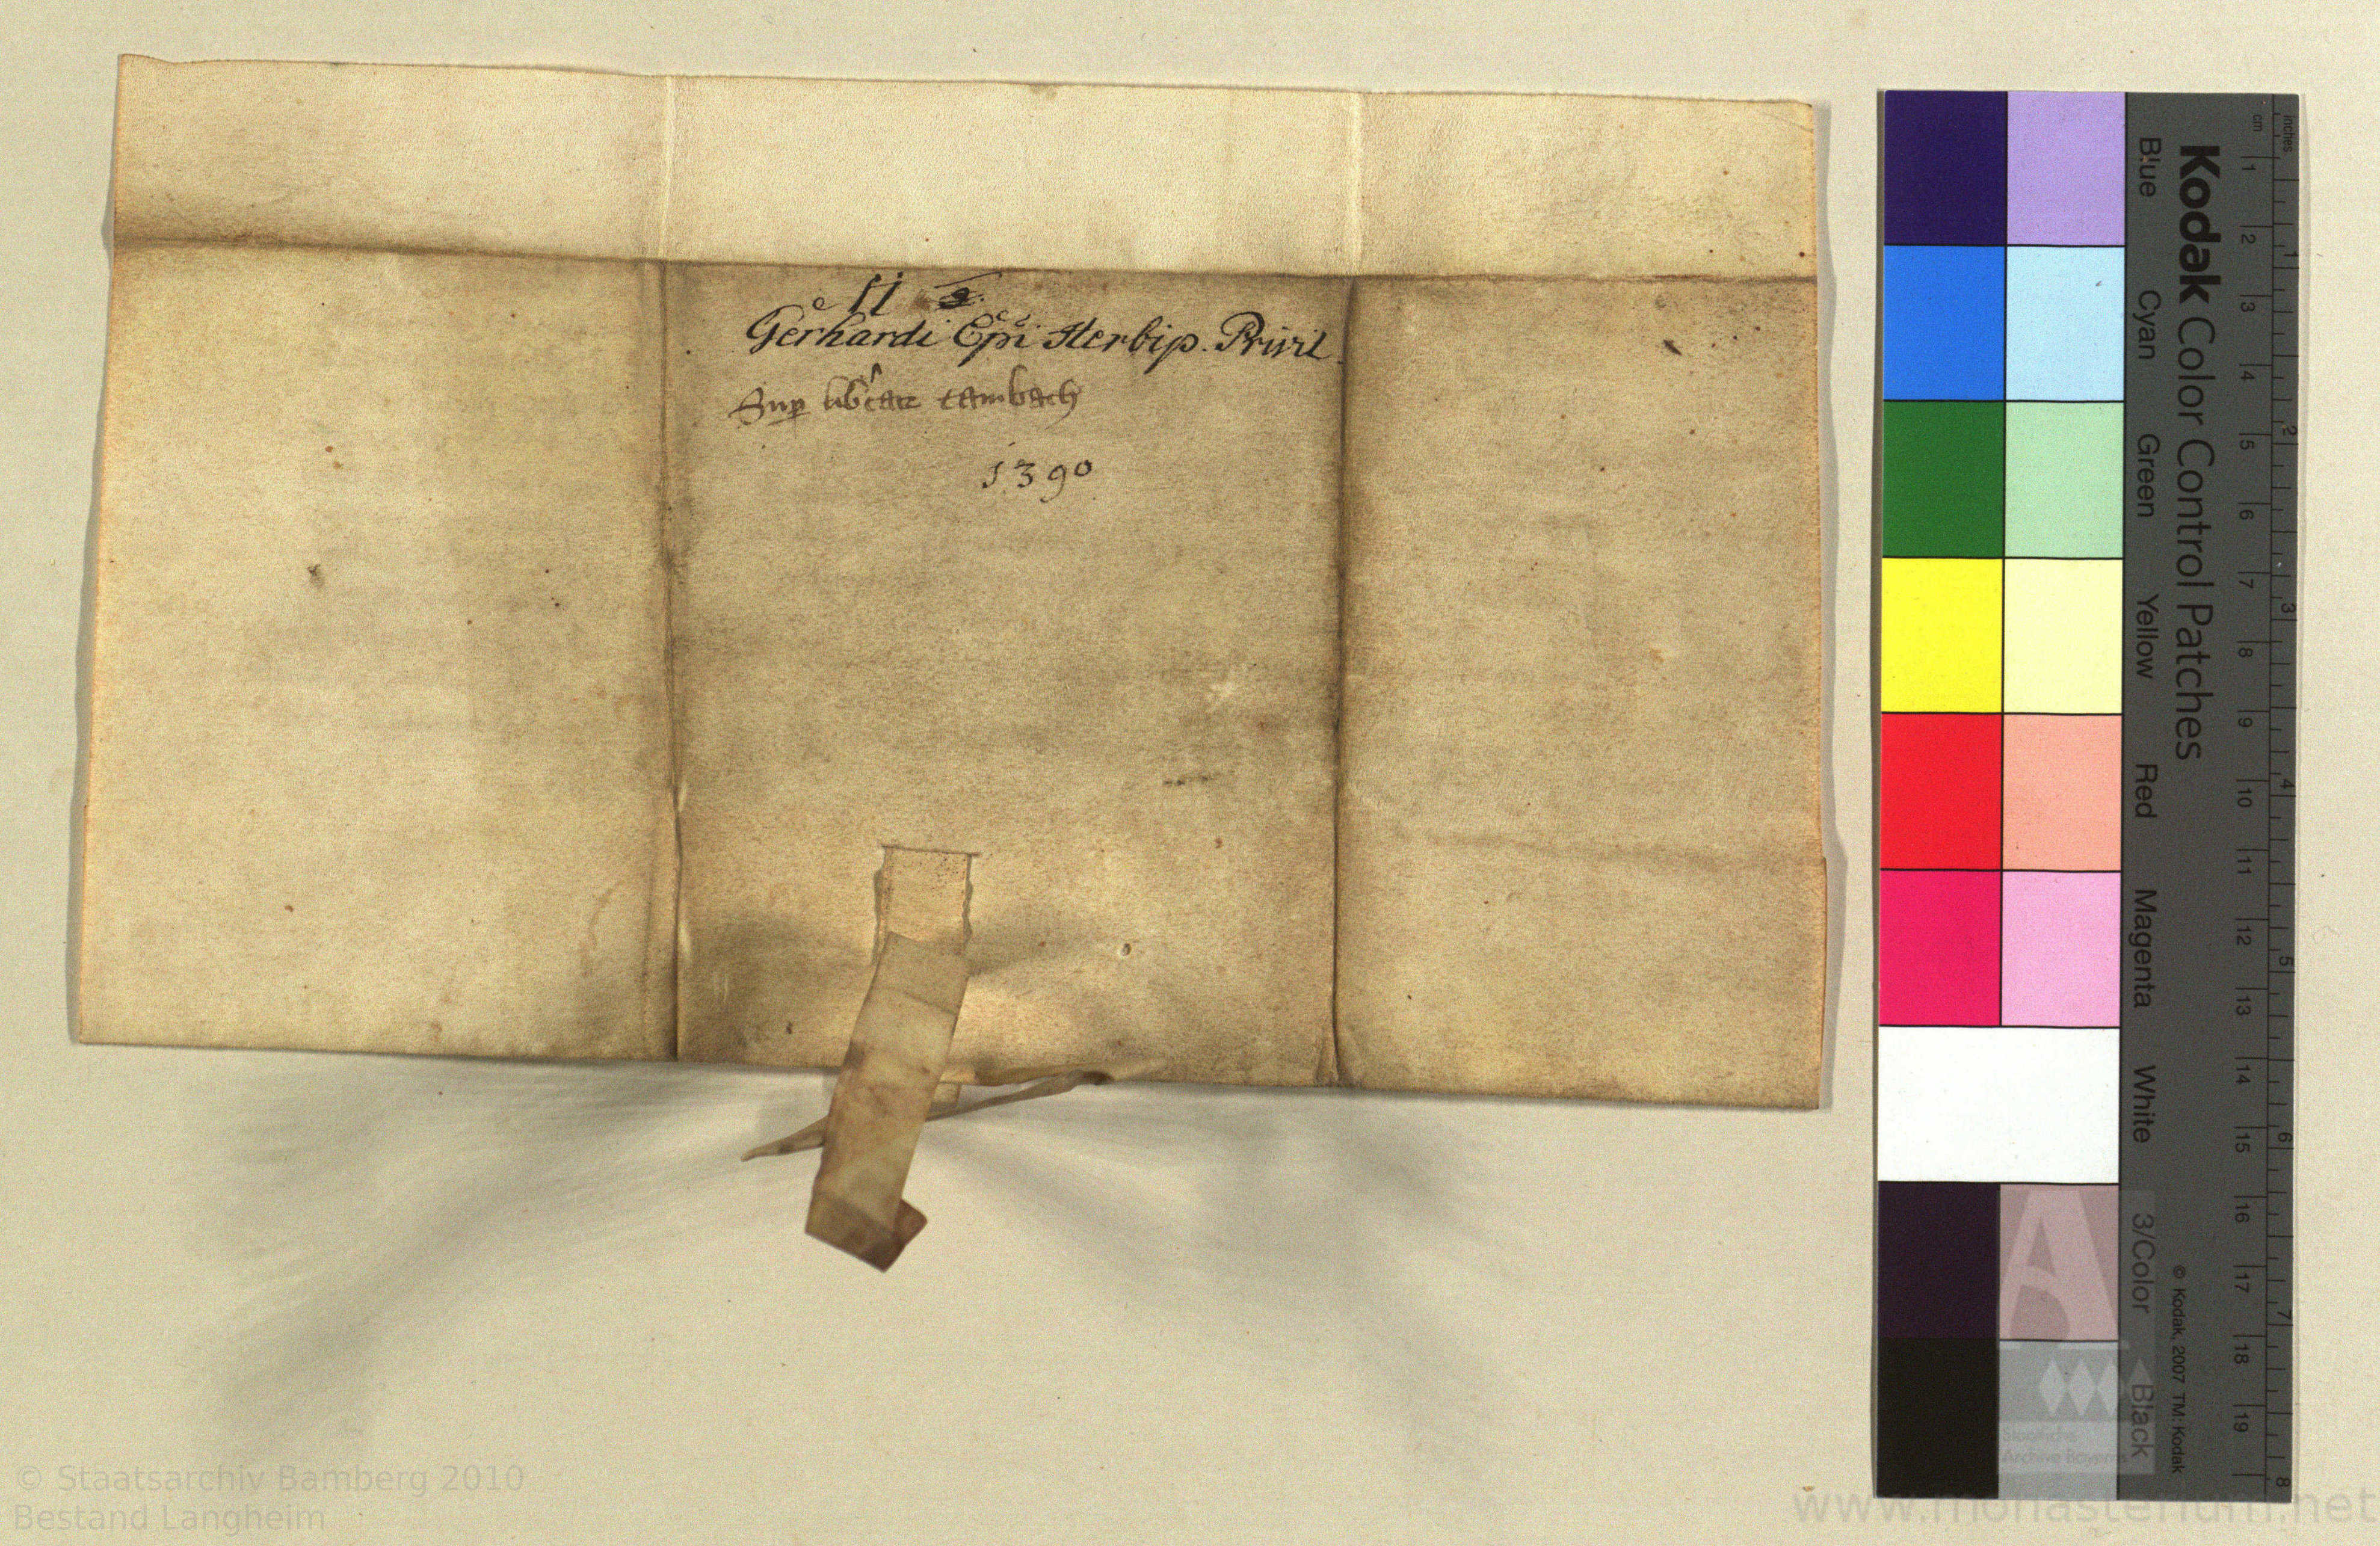 11 2.
Gerhardi Epi Herbip. Privil
Sup libtate tambach
1390
Kodak Color Control Patches
Blue Cyan Green Yellow Red Magenta White 3/Color Black
© Kodak, 2007 TM: Kodak
inches 1 2 3 4 5 6 7 8
cm 1 2 3 4 5 6 7 8 9 10 11 12 13 14 15 16 17 18 19
Staatliche
Archive Bayerns
© Staatsarchiv Bamberg 2010
Bestand Langheim
www.monasterium.net